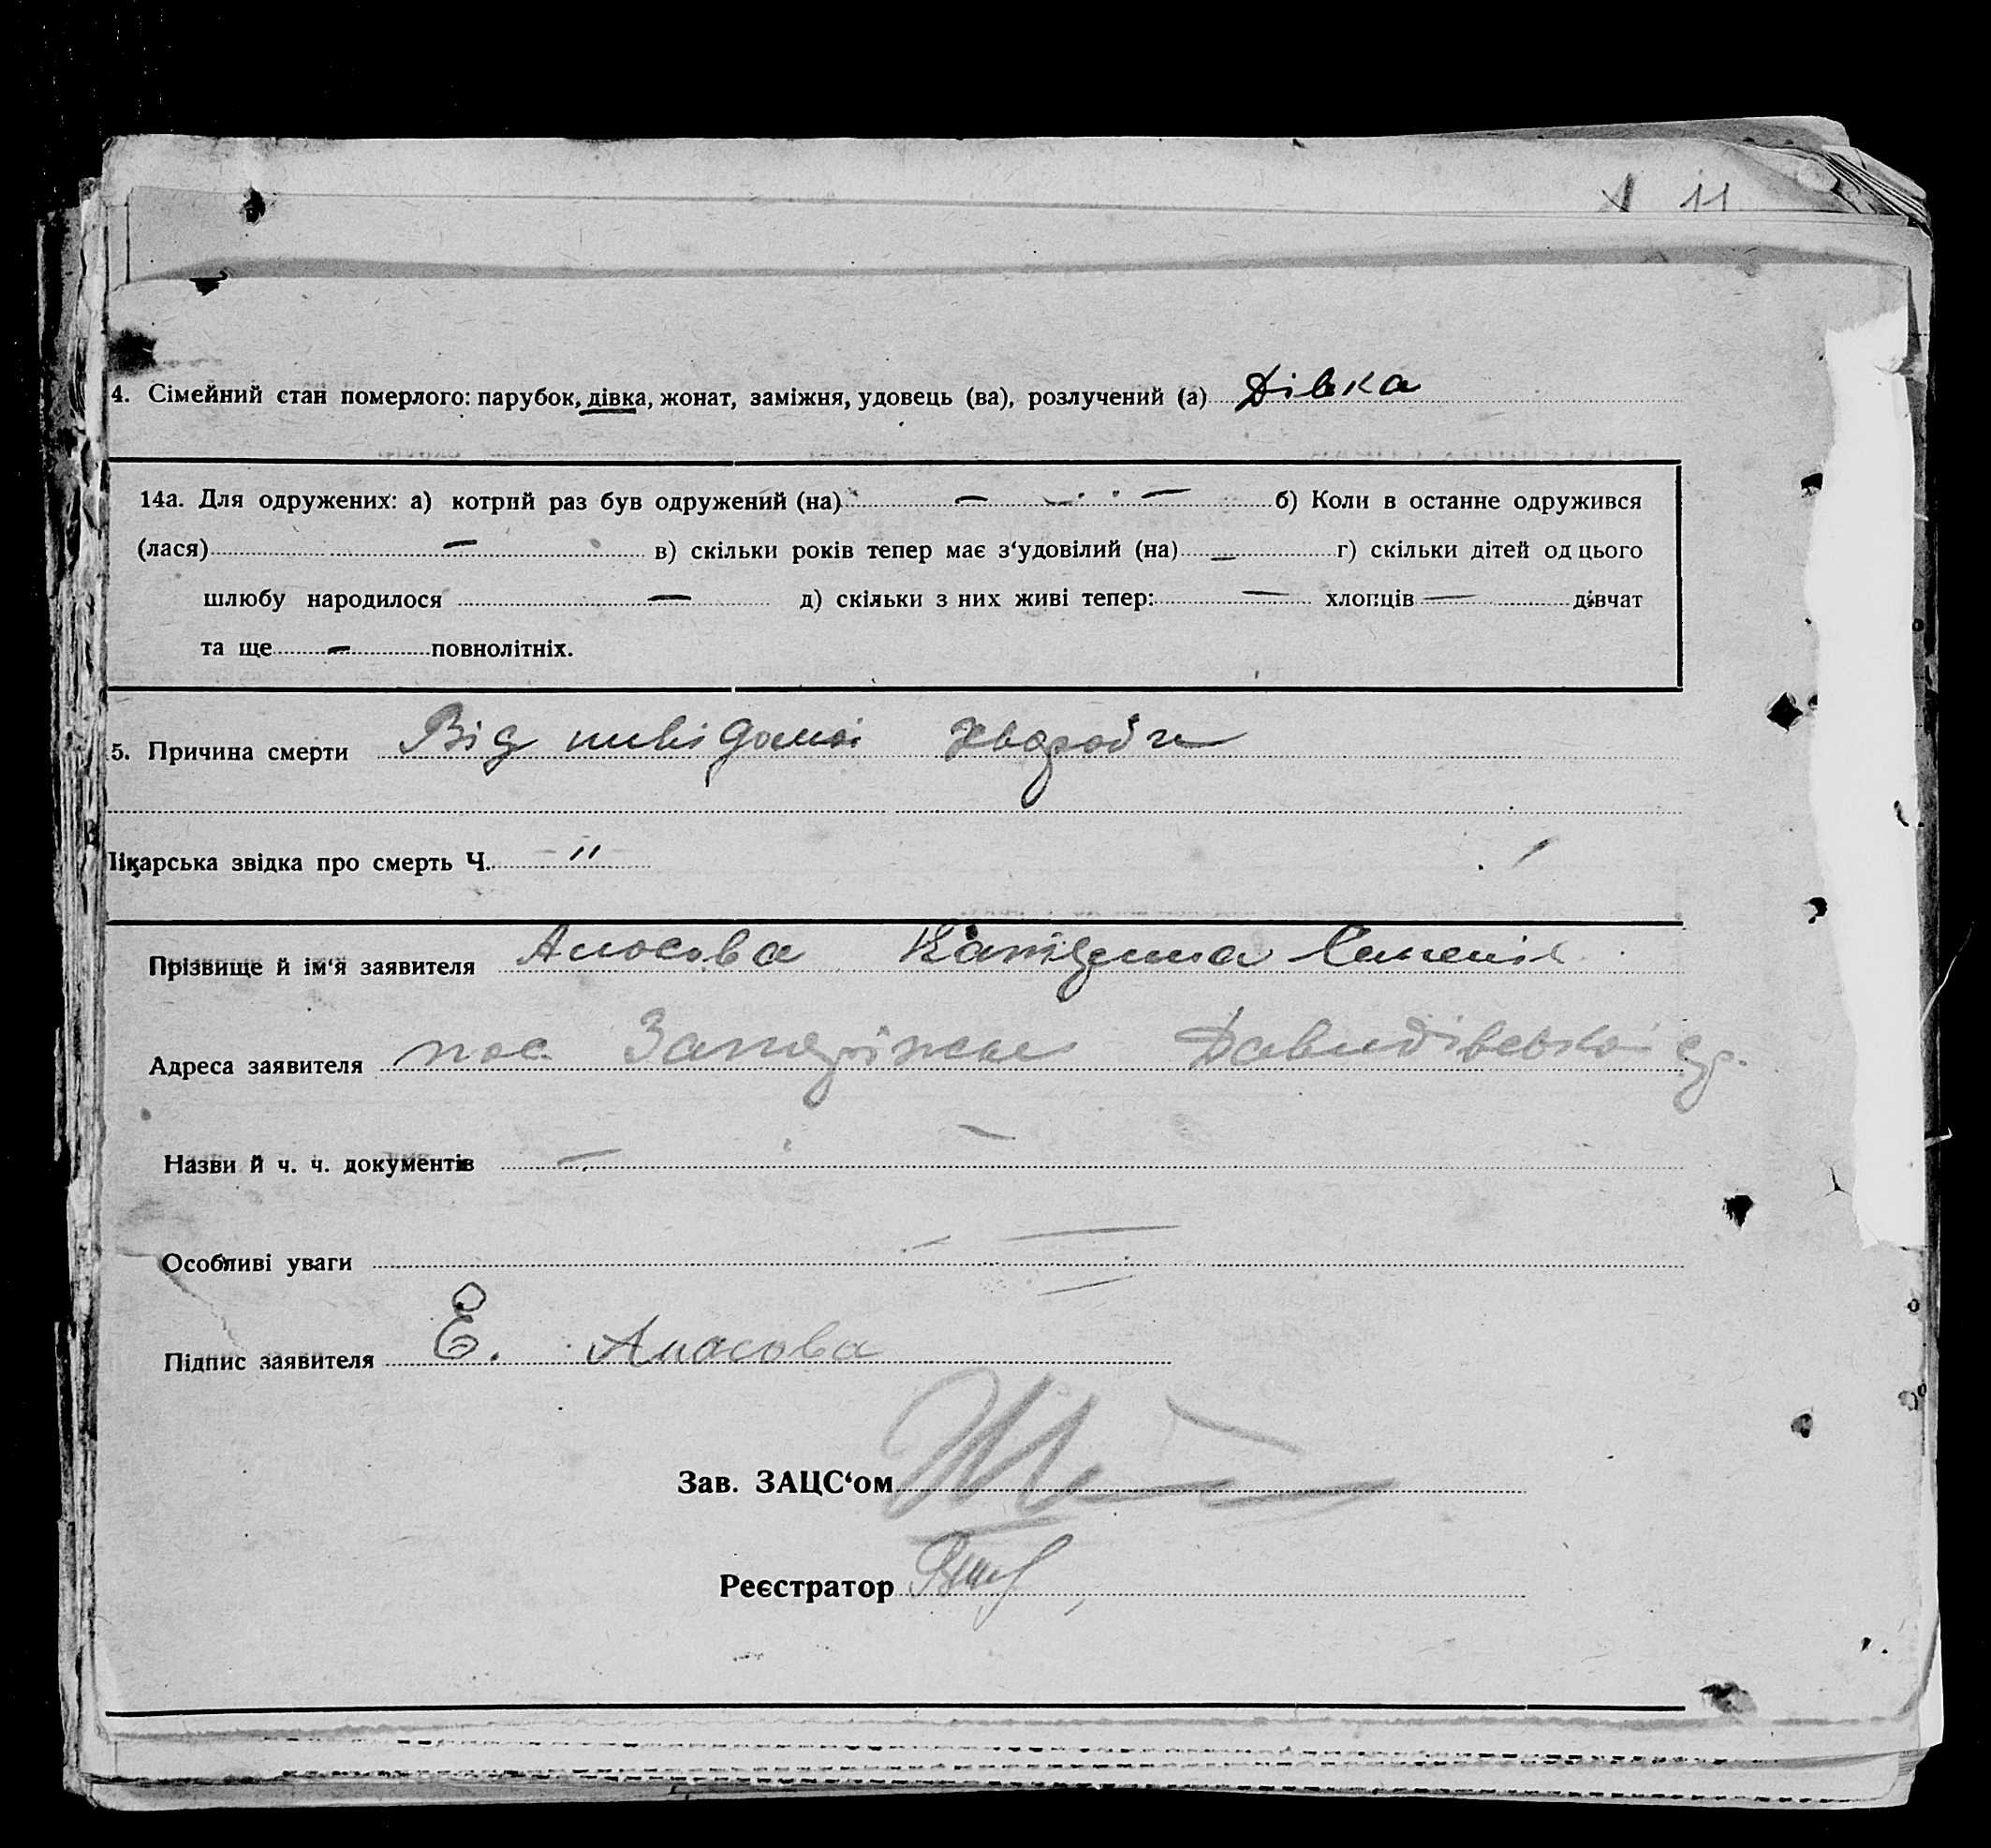 11
4. Сімейний стан померлого: парубок, дівка, жонат, заміжня, удовець (ва), розлучений (а) Дівка
14а. Для одружених: а) котрий раз був одружений (на) — — б) Коли в останне одружився
(лася) — в) скільки років тепер має з‘удовілий (на) — г) скільки дітей од цього
шлюбу народилося — д) скільки з них живі тепер: — хлопців — дівчат
та ще — повнолітніх.
5. Причина смерти Від невідомої хвороби
Лікарська звідка про смерть Ч. "
Прізвище й ім‘я заявителя Аносова
Адреса заявителя пос Давидівської
Назви й ч. ч. документів — —
Особливі уваги — —
Підпис заявителя Е. Аносова
Зав. ЗАЦС‘ом
Реєстратор